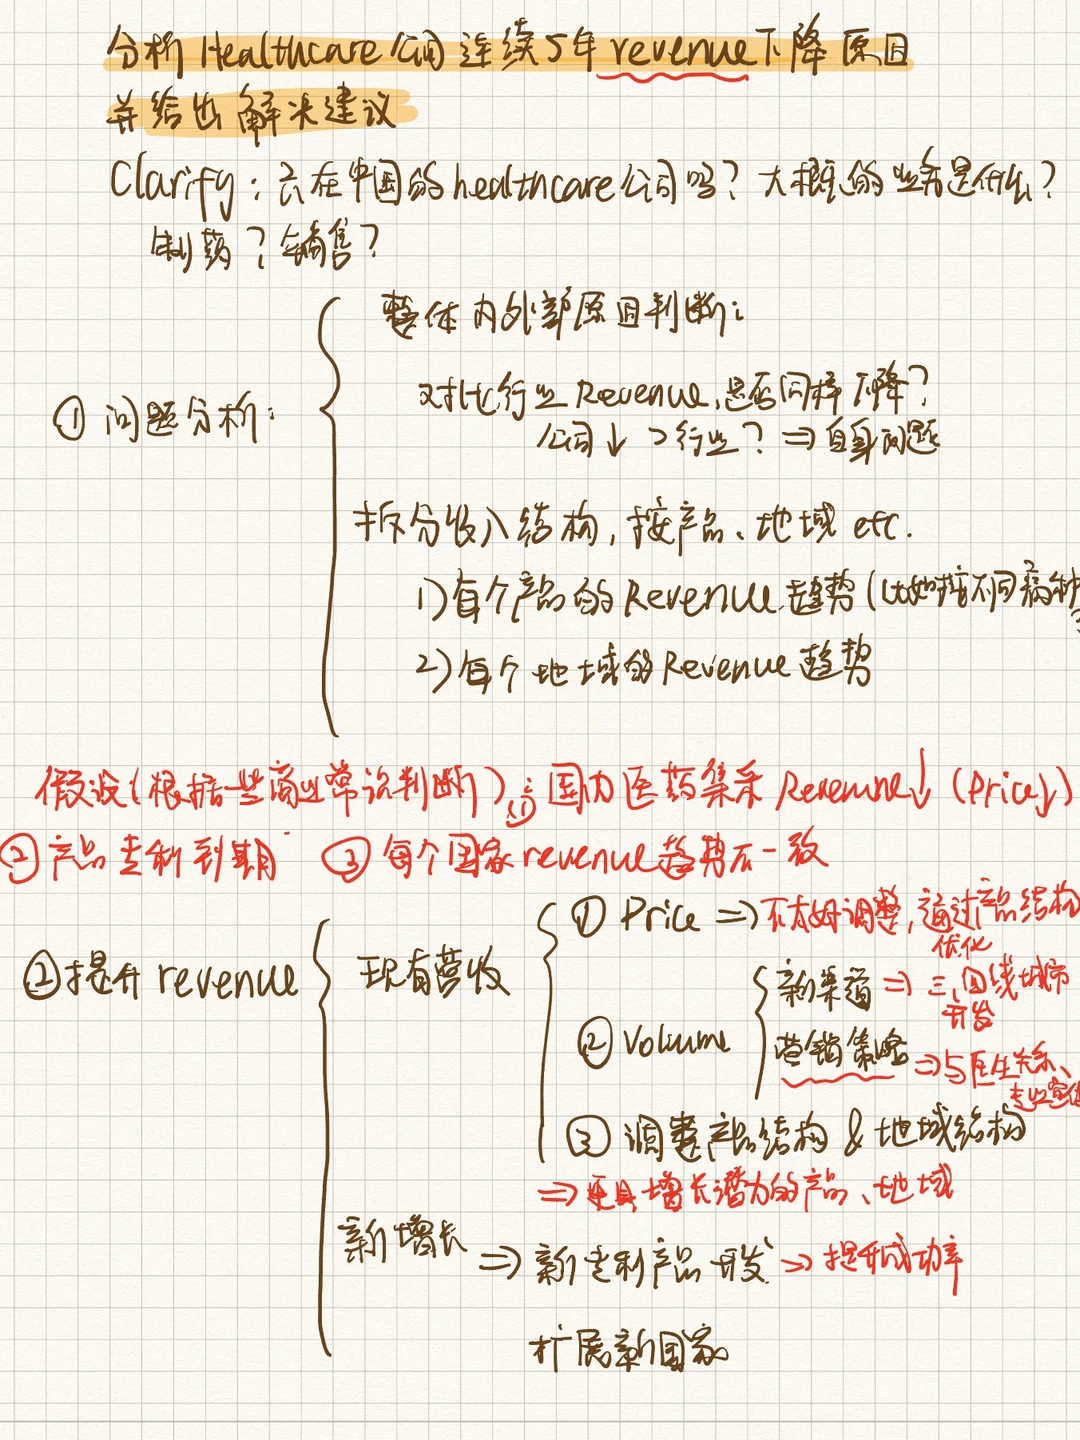 分析 Healthcare 公司 连续5年 revenue下降 原因
并给出 解决建议
Clarify：只在中国的healthcare公司吗？大概的业务是什么？
制药？销售？
整体内外部原因判断：
对比行业 Revenue，是否同样下降？
① 问题分析：
公司↓ > 行业？ ⇒ 自身问题
拆分收入结构，按产品、地域 etc.
1) 每个产品的 Revenue 趋势 (比如按不同病种
2) 每个地域的 Revenue 趋势
假设（根据一些商业常识判断）：① 国内医药集采 Revenue↓ (Price↓)
② 产品专利到期 ③ 每个国家 revenue趋势不一致
① Price ⇒ 不太好调整，通过产品结构
优化
② 提升 revenue
现有营收
新渠道 ⇒ 三、四线城市
开发
② Volume
营销策略 ⇒ 与医生关系、
专业宣传
③ 调整产品结构 & 地域结构
⇒ 更具增长潜力的产品、地域
新增长 ⇒ 新专利产品开发 ⇒ 提升成功率
扩展新国家